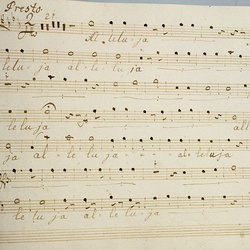 Presto
21
Al le lu ja
lelu - ja al - le lu ja
le lu ja all
ja al - le lu ja - - - al leluja
le lu ja al le lu ja